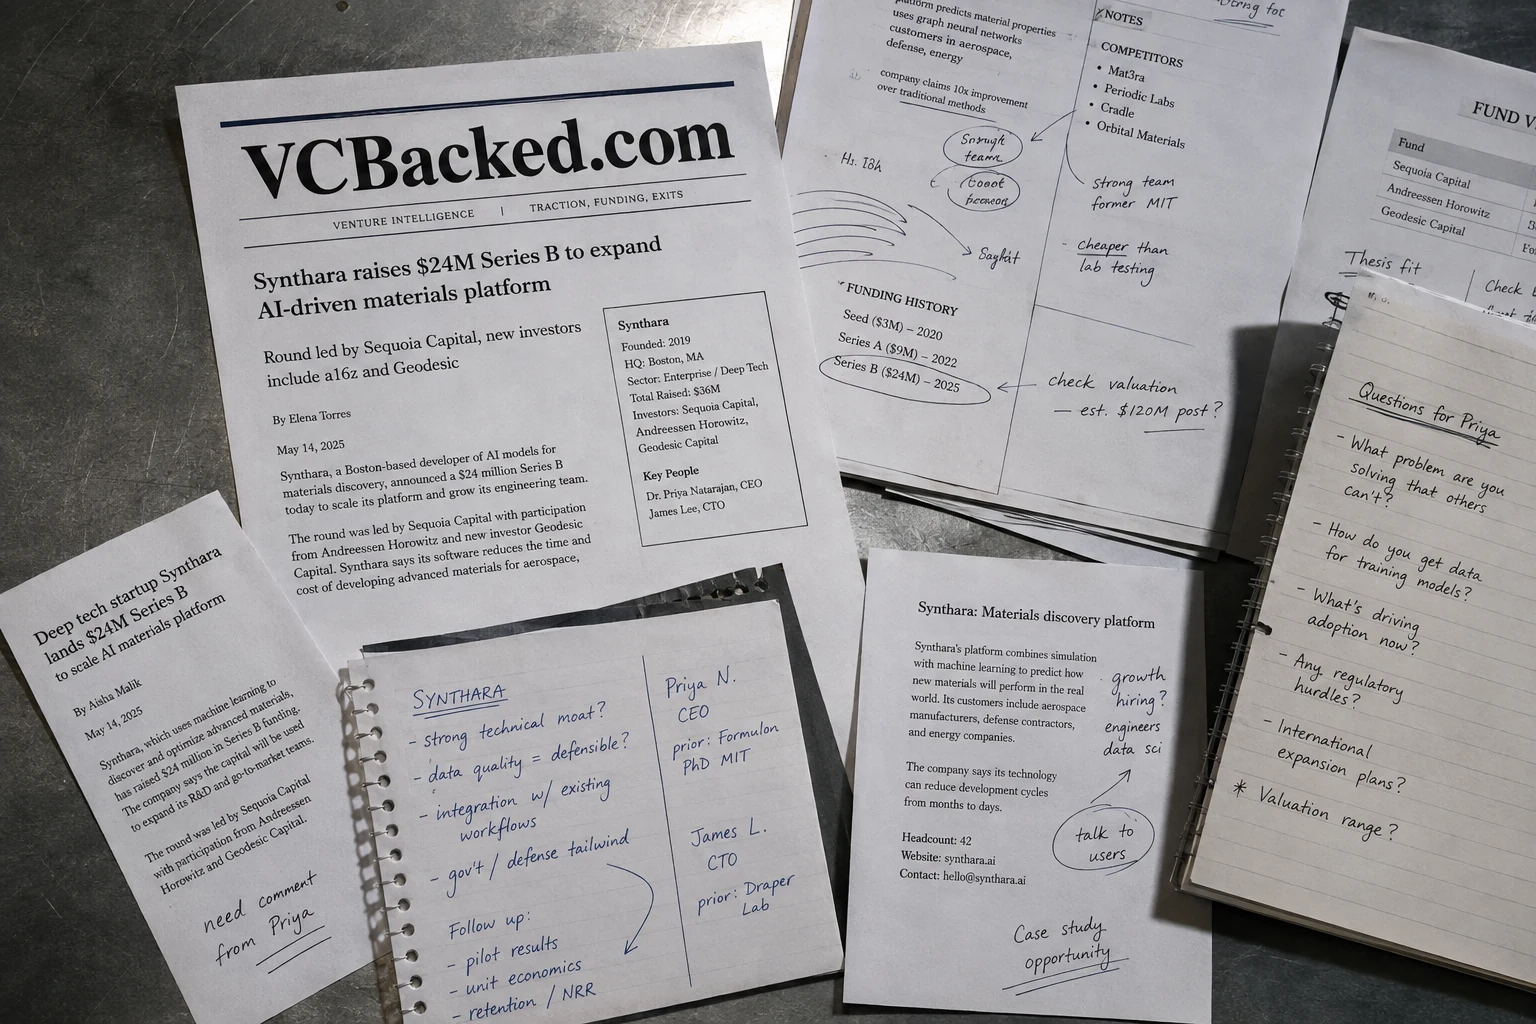 VCBacked.com
VENTURE INTELLIGENCE | TRACTION, FUNDING, EXITS
Synthara raises $24M Series B to expand
AI-driven materials platform
Round led by Sequoia Capital, new investors
include a16z and Geodesic
By Elena Torres
May 14, 2025
Synthara, a Boston-based developer of AI models for
materials discovery, announced a $24 million Series B
today to scale its platform and grow its engineering team.
The round was led by Sequoia Capital with participation
from Andreessen Horowitz and new investor Geodesic
Capital. Synthara says its software reduces the time and
cost of developing advanced materials for aerospace,
Synthara
Founded: 2019
HQ: Boston, MA
Sector: Enterprise / Deep Tech
Total Raised: $36M
Investors: Sequoia Capital,
Andreessen Horowitz,
Geodesic Capital
Key People
Dr. Priya Natarajan, CEO
James Lee, CTO
platform predicts material properties
uses graph neural networks
customers in aerospace,
defense, energy
company claims 10x improvement
over traditional methods
FUNDING HISTORY
Seed ($3M) – 2020
Series A ($9M) – 2022
Series B ($24M) – 2025
NOTES
COMPETITORS
• Mat3ra
• Periodic Labs
• Cradle
• Orbital Materials
strong team
former MIT
- cheaper than
lab testing
check valuation
— est. $120M post?
FUND V
Fund
Sequoia Capital
Andreessen Horowitz
Geodesic Capital
Thesis fit
Check
Questions for Priya
- What problem are you
solving that others
can't?
- How do you get data
for training models?
- What's driving
adoption now?
- Any regulatory
hurdles?
- International
expansion plans?
* Valuation range?
Deep tech startup Synthara
lands $24M Series B
to scale AI materials platform
By Aisha Malik
May 14, 2025
Synthara, which uses machine learning to
discover and optimize advanced materials,
has raised $24 million in Series B funding.
The company says the capital will be used
to expand its R&D and go-to-market teams.
The round was led by Sequoia Capital
with participation from Andreessen
Horowitz and Geodesic Capital.
need comment
from Priya
SYNTHARA
- strong technical moat?
- data quality = defensible?
- integration w/ existing
workflows
- gov't / defense tailwind
Follow up:
- pilot results
- unit economics
- retention / NRR
Priya N.
CEO
prior: Formulon
PhD MIT
James L.
CTO
prior: Draper
Lab
Synthara: Materials discovery platform
Synthara's platform combines simulation
with machine learning to predict how
new materials will perform in the real
world. Its customers include aerospace
manufacturers, defense contractors,
and energy companies.
The company says its technology
can reduce development cycles
from months to days.
Headcount: 42
Website: synthara.ai
Contact: hello@synthara.ai
growth
hiring?
engineers
data sci
talk to
users
Case study
opportunity